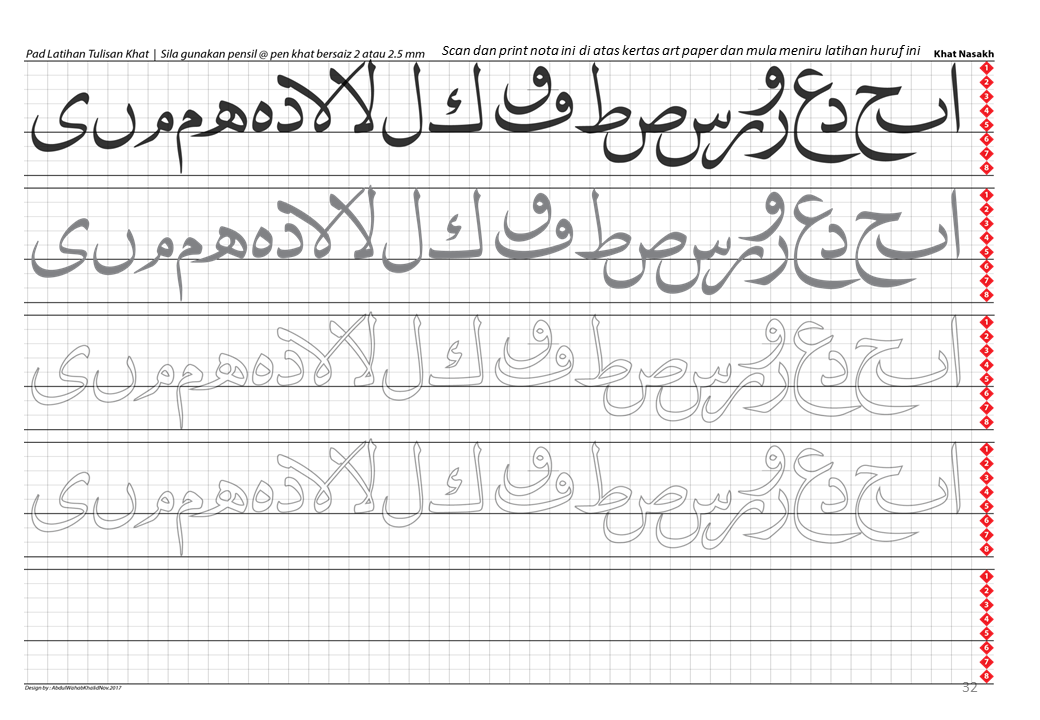 Pad Latihan Tulisan Khat | Sila gunakan pensil @ pen khat bersaiz 2 atau 2.5 mm
Scan dan print nota ini di atas kertas art paper dan mula meniru latihan huruf ini
Khat Nasakh
ا ٮ ح د ع ر و ر س ص ط ڡ ٯ ك ل لا لا د ه ه م م ں ى
1
2
3
4
5
6
7
8
ا ٮ ح د ع ر و ر س ص ط ڡ ٯ ك ل لا لا د ه ه م م ں ى
1
2
3
4
5
6
7
8
ا ٮ ح د ع ر و ر س ص ط ڡ ٯ ك ل لا لا د ه ه م م ں ى
1
2
3
4
5
6
7
8
ا ٮ ح د ع ر و ر س ص ط ڡ ٯ ك ل لا لا د ه ه م م ں ى
1
2
3
4
5
6
7
8
1
2
3
4
5
6
7
8
Design by : AbdulWahabKhalidNov.2017
32